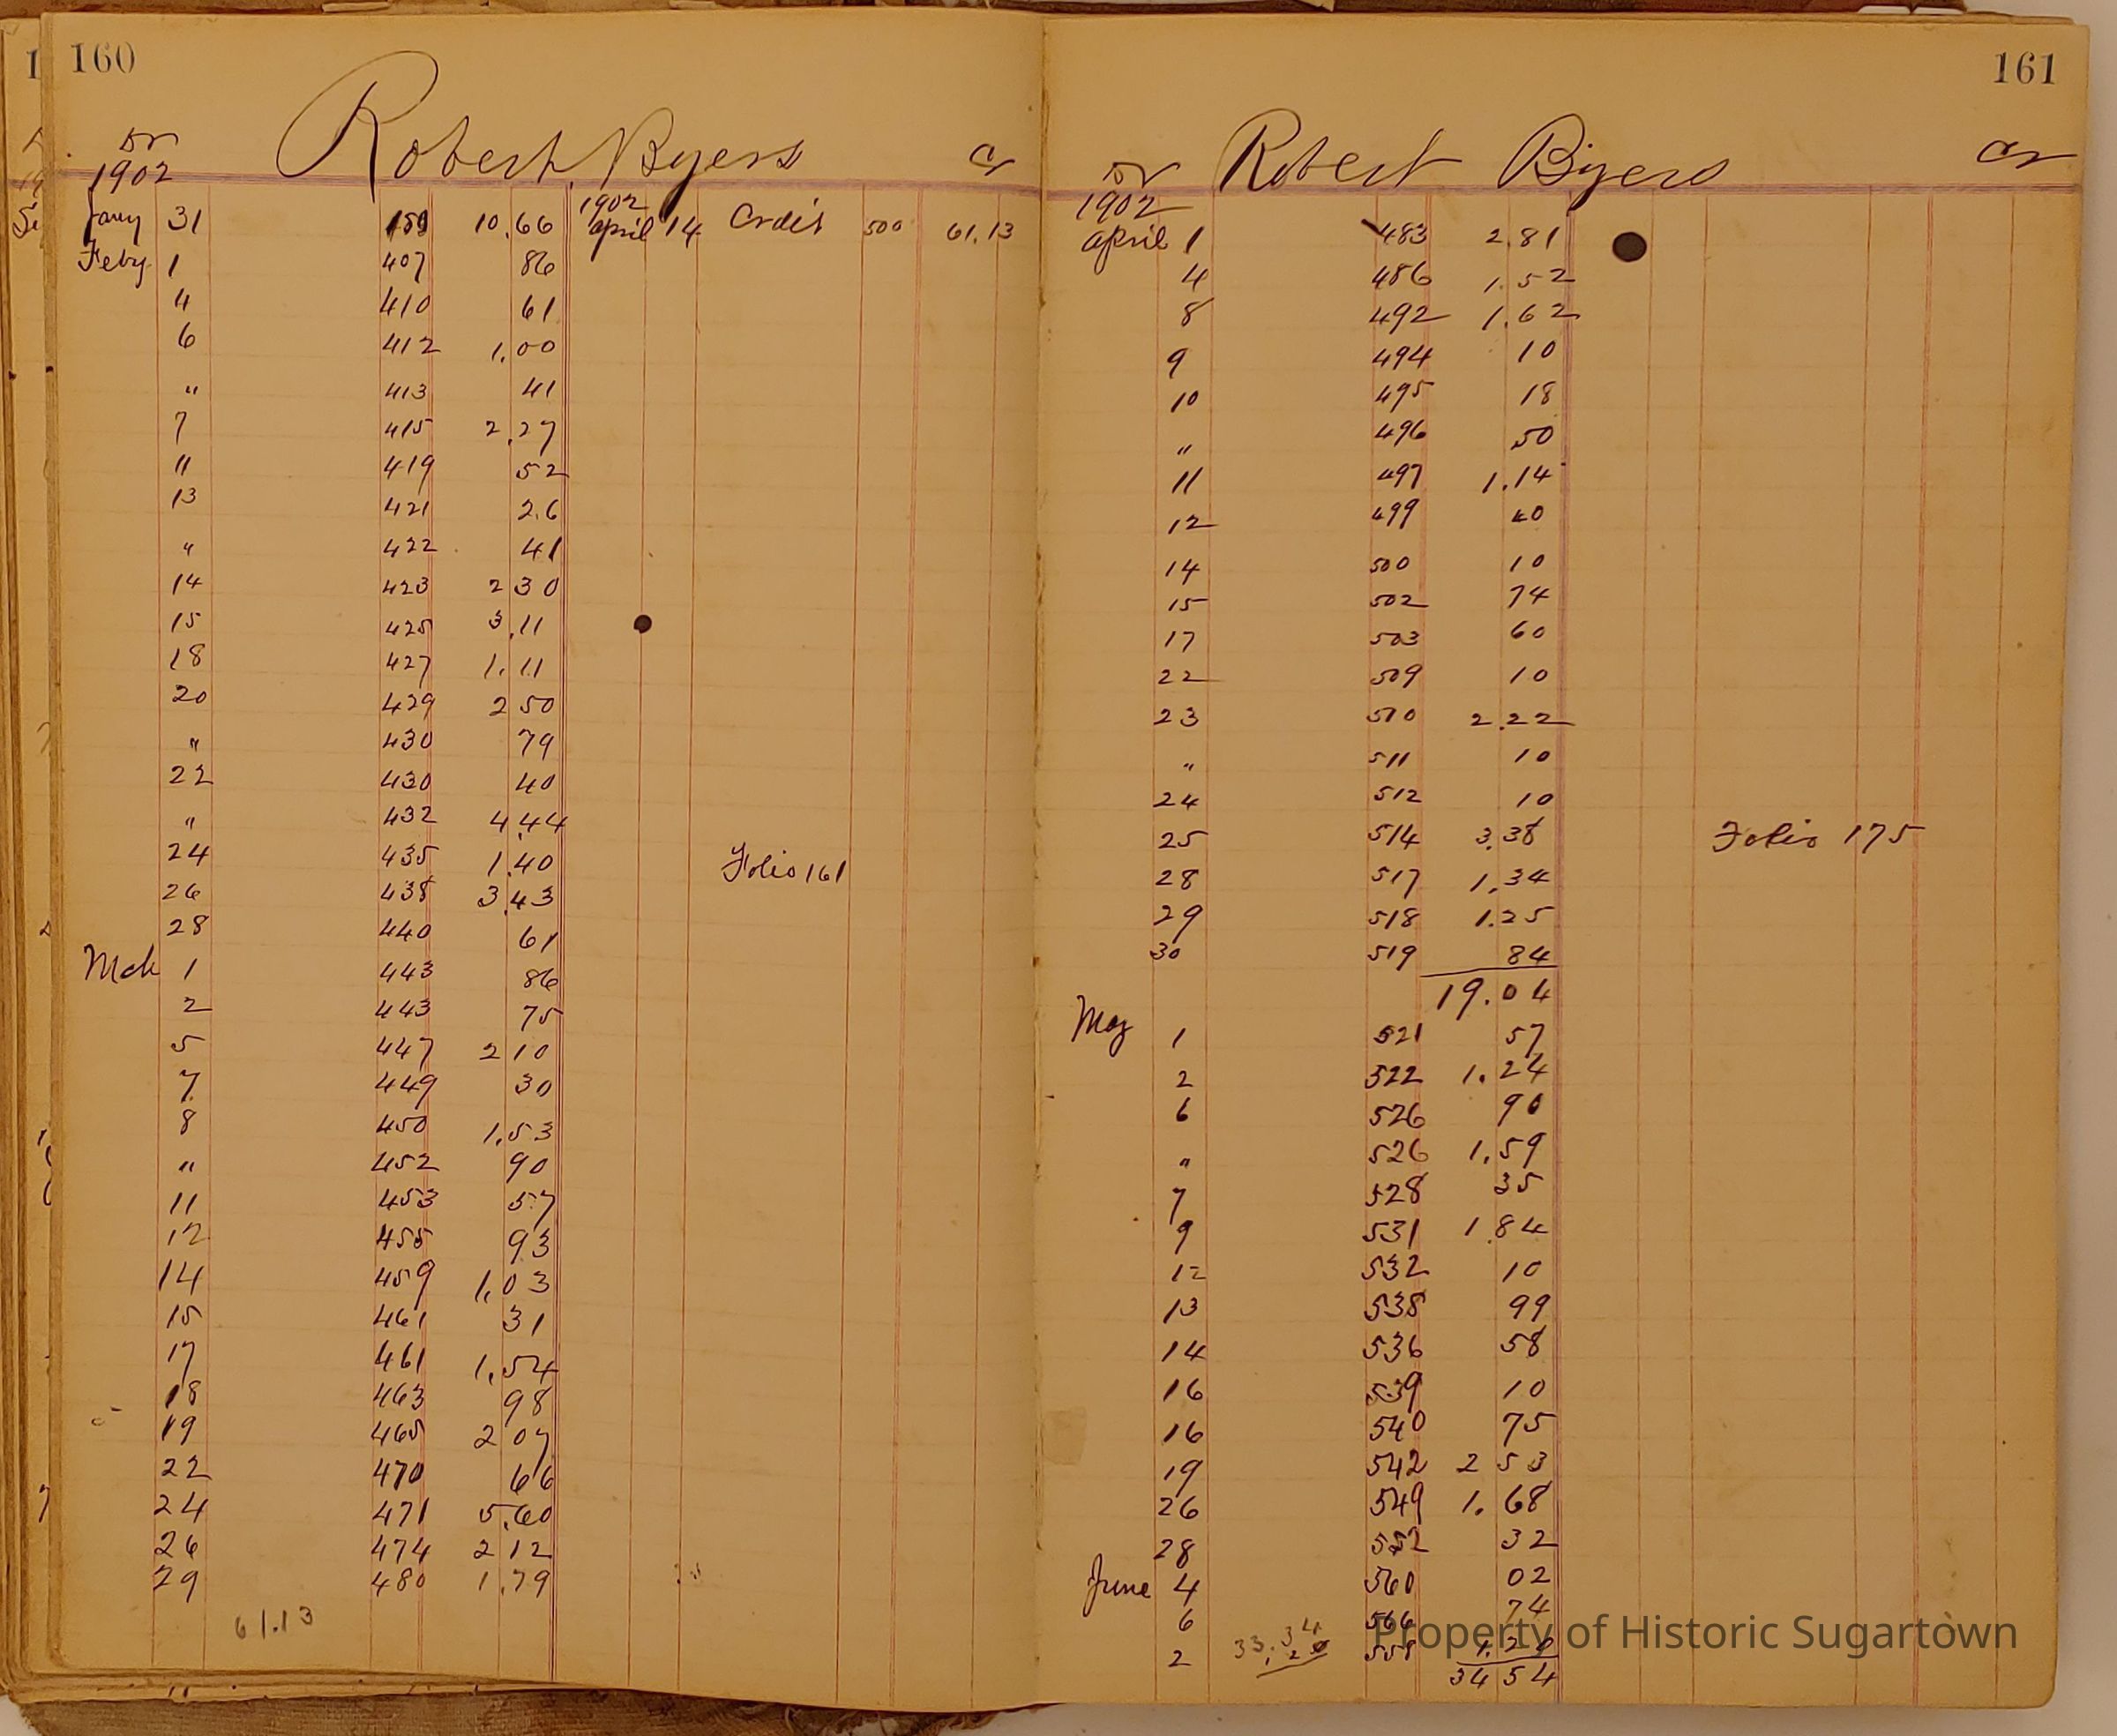 160
Robert Byers
Dr Cr
1902
Jany 31 150 10.66 1902 April 14 Credit 500 61.13
Feby 1 407 86
4 410 61
6 412 1.00
" 413 41
7 415 2.27
11 419 52
13 421 2.6
" 422 41
14 423 2 30
15 425 3.11
18 427 1.11
20 429 2 50
" 430 79
22 430 40
" 432 4.44
24 435 1.40 Folio 161
26 438 3.43
28 440 61
Mch 1 443 86
2 443 75
5 447 2 10
7 449 30
8 450 1.53
" 452 90
11 453 57
12 455 93
14 459 1.03
15 461 31
17 461 1.54
18 463 98
19 465 2 07
22 470 66
24 471 5.60
26 474 2 12
29 480 1.79
61.13
161
Dr Robert Byers Cr
1902
April 1 483 2.81
4 486 1.52
8 492 1.62
9 494 10
10 495 18
" 496 50
11 497 1.14
12 499 40
14 500 10
15 502 74
17 503 60
22 509 10
23 510 2.22
" 511 10
24 512 10
25 514 3.38 Folio 175
28 517 1.34
29 518 1.25
30 519 84
19.04
May 1 521 57
2 522 1.24
6 526 90
" 526 1.59
7 528 35
9 531 1.84
12 532 10
13 535 99
14 536 58
16 539 10
16 540 75
19 542 2 53
26 549 1.68
28 552 32
June 4 560 02
6 566 74
2 33.34 558 1.20
34 54
Property of Historic Sugartown